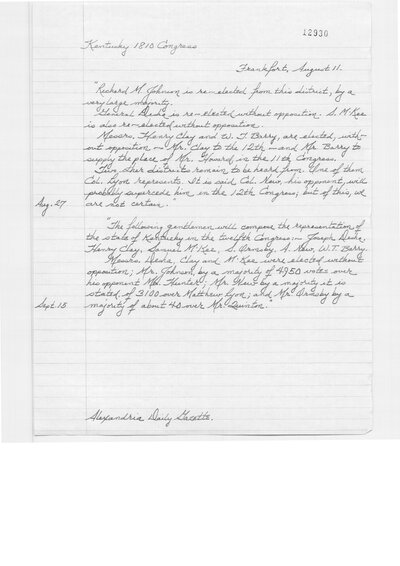 12930
Kentucky 1810 Congress
Frankfort, August 11.
"Richard M. Johnson is re-elected from this district, by a
very large majority.
General Desha is re-elected without opposition. S. McKee
is also re-elected without opposition.
Messrs. Henry Clay and W. T. Barry, are elected, with-
out opposition — Mr. Clay to the 12th — and Mr. Barry to
supply the place of Mr. Howard in the 11th Congress.
Two other districts remain to be heard from. One of them
Col. Lyon represents. It is said Col. New, his opponent, will
probably supercede him in the 12th Congress; but of this, we
are not certain."
Aug. 27
"The following gentlemen will compose the representation of
the state of Kentucky in the twelfth Congress:— Joseph Desha,
Henry Clay, Samuel McKee, S. Ormsby, A. New, W.T. Barry.
Messrs. Desha, Clay and McKee were elected without
opposition; Mr. Johnson, by a majority of 4950 votes over
his opponent Mr. Hunter; Mr. New by a majority it is
stated, of 3100 over Matthew Lyon; and Mr. Ormsby by a
majority of about 40 over Mr. Quinton."
Sept. 15
Alexandria Daily Gazette.